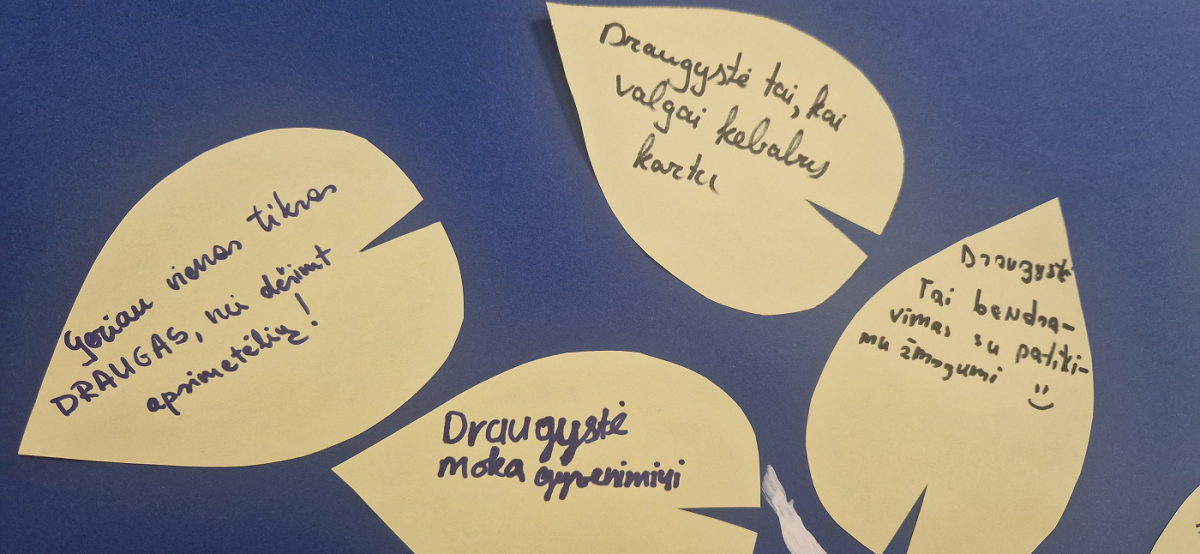 Draugystė tai, kai
valgai kebabus
kartu
Geriau vienas tikras
DRAUGAS, nei dešimt
apsimetėlių!
Draugystė
Tai bendra-
vimas su patiki-
mu žmogumi
Draugystė
moka gyvenimiui